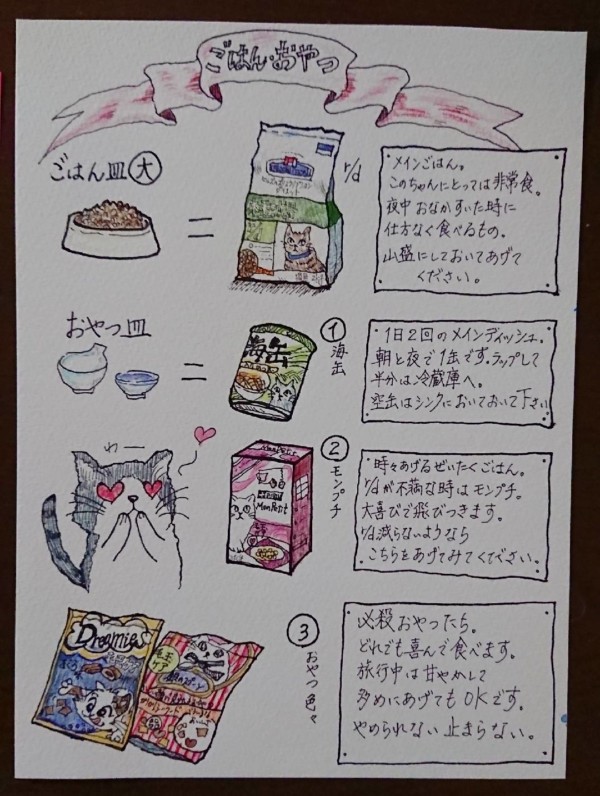 ごはん・おやつ
ごはん皿 大
r/d
メインごはん。
このちゃんにとっては非常食。
夜中おなかすいた時に
仕方なく食べるもの。
山盛にしておいてあげて
ください。
おやつ皿
海缶
① 海缶
1日2回のメインディッシュ。
朝と夜で1缶です。ラップして
半分は冷蔵庫へ。
空缶はシンクにおいておいて下さい
わー
MonPetit
② モンプチ
時々あげるぜいたくごはん。
r/dが不満な時はモンプチ。
大喜びで飛びつきます。
r/d減らないようなら
こちらをあげてみてください。
Dreamies
③ おやつ色々
必殺おやつたち。
どれでも喜んで食べます。
旅行中は甘やかして
多めにあげてもOKです。
やめられない止まらない。